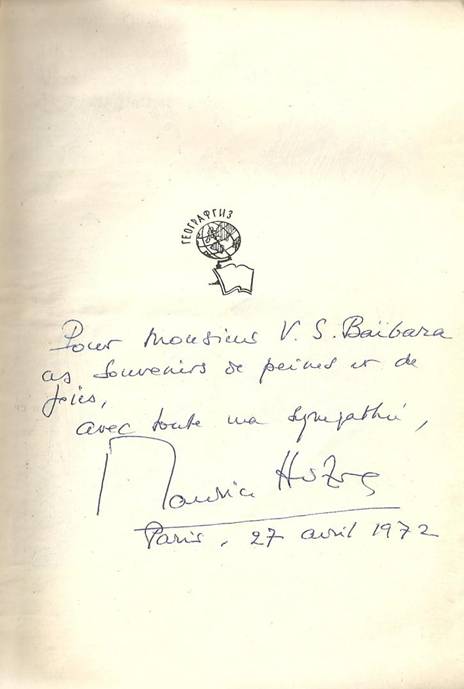 ГЕОГРАФГИЗ
Pour Monsieur V. S. Baïbara
ces souvenirs de peines et de
joies,
avec toute ma sympathie,
Maurice Herzog
Paris, 27 avril 1972